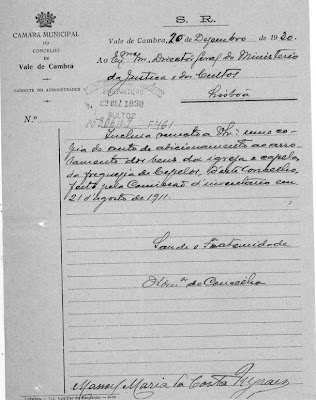 S. R.
CÂMARA MUNICIPAL
DO
CONCELHO
DE
Vale de Cambra
GABINETE DO ADMINISTRADOR
N.º
Vale de Cambra, 20 de Dezembro de 1930.
Ao Ex.mo Snr. Director Geral do Ministerio
da Justica e dos Cultos
Lisboa
DEZ 1930
CULTOS
Inclusa remeto a V. Ex.ª uma co-
pia do auto de adicionamento ao arro-
lamento dos bens da igreja e capelas
da freguezia de Cepelos, deste Concelho,
feito pela Comissão d'inventario em
21 d'agosto de 1911.
Saude e Fraternidade
O Adm.or do Concelho
Manoel Maria da Costa